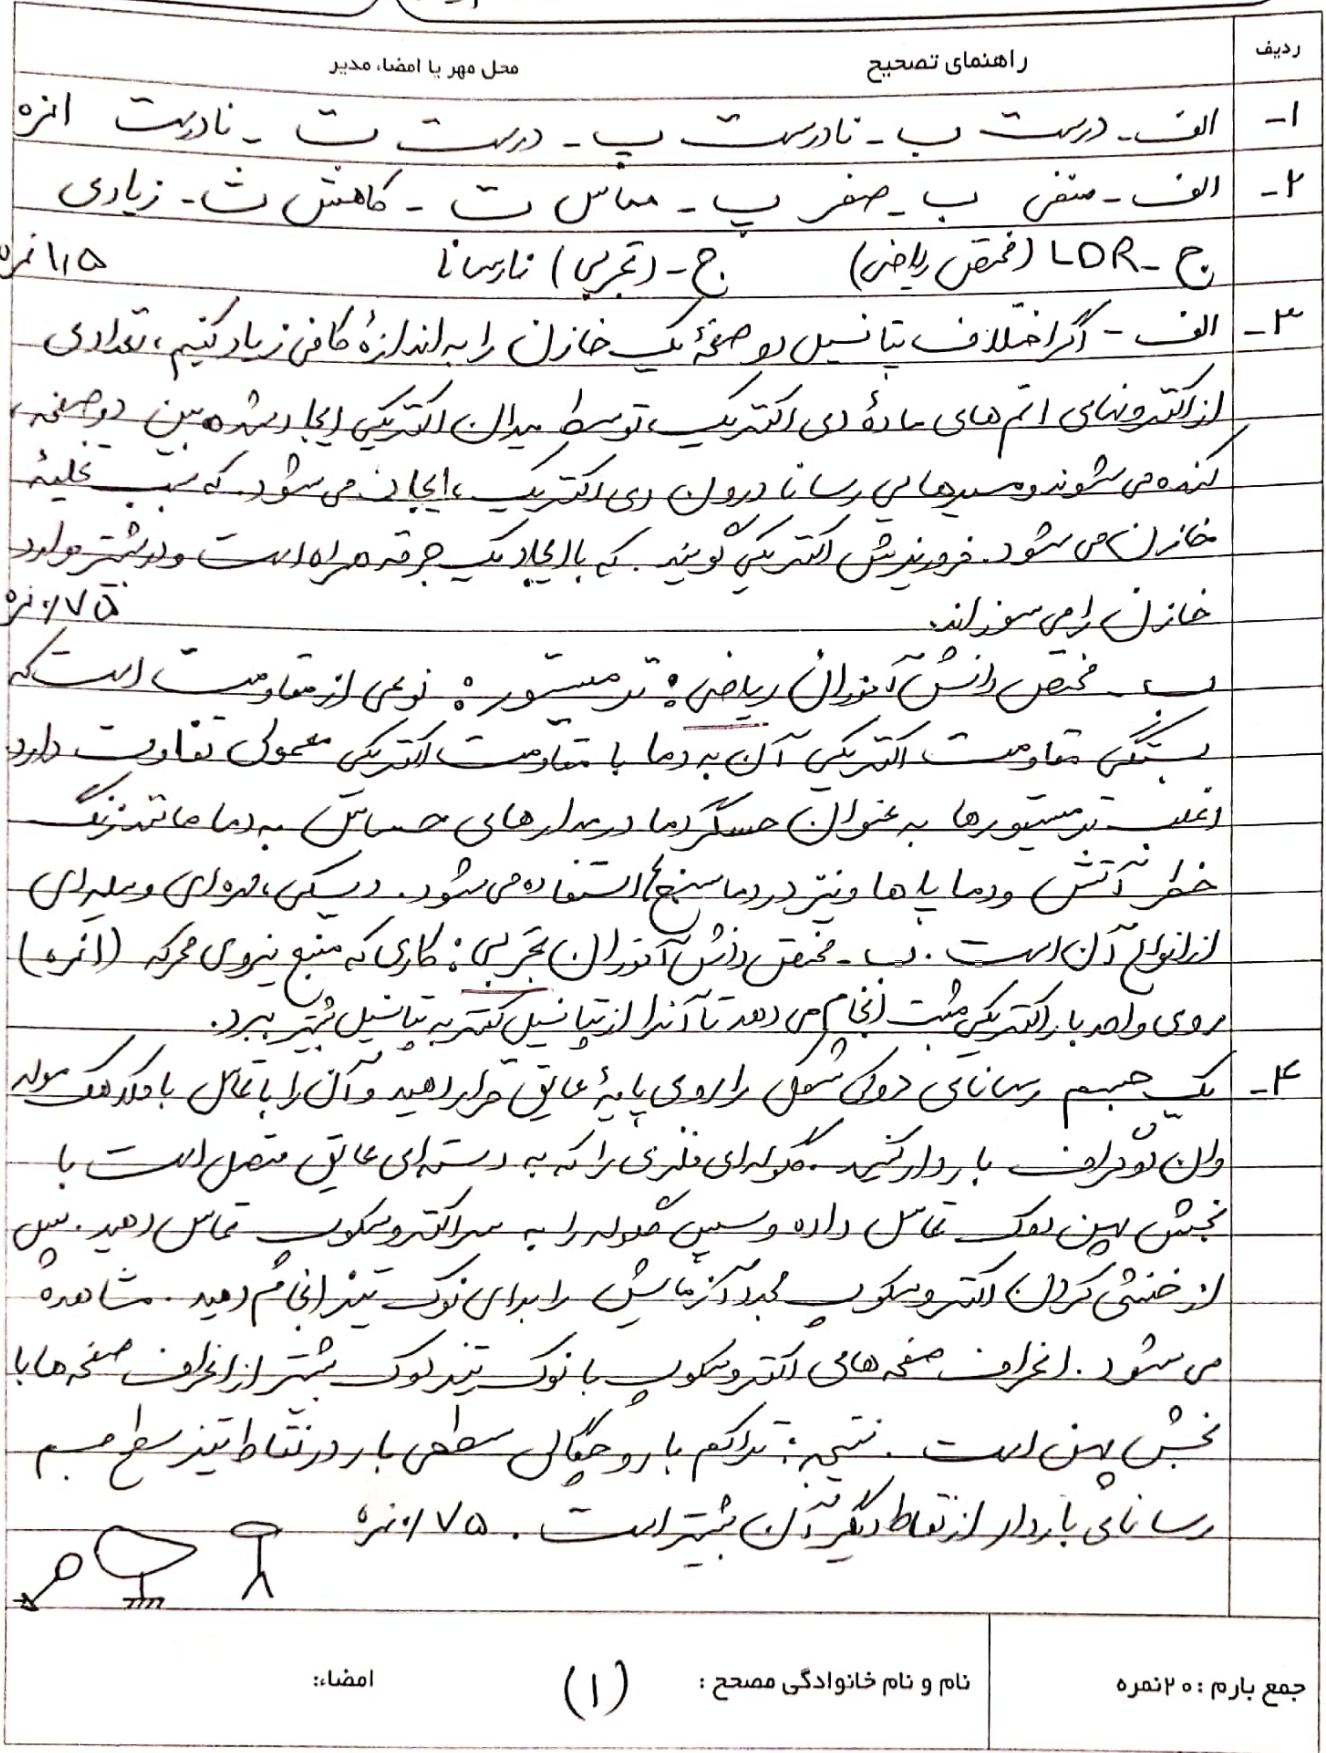 ردیف
راهنمای تصحیح
محل مهر یا امضاء مدیر
۱- الف - درست ب - نادرست پ - درست ت - نادرست ۱نمره
۲- الف - منفی ب - صفر پ - مماس ت - کاهش ث - زیادی
ج - LDR (مختص ریاضی) ج - (تجربی) نارسانا ۱٫۵ نمره
۳- الف - اگر اختلاف پتانسیل دو صفحهٔ یک خازن را به اندازهٔ کافی زیاد کنیم، تعدادی
از الکترونهای اتم های مادهٔ دی الکتریک، توسط میدان الکتریکی ایجاد شده بین دو صفحه،
کنده می شوند و مسیرهایی رسانا درون دی الکتریک، ایجاد می شود. که سبب تخلیهٔ
خازن می شود. فروریزش الکتریکی گویند. که با ایجاد یک جرقه همراه است و در بیشتر موارد
خازن را می سوزاند. ۰٫۷۵ نمره
ب - مختص دانش آموزان ریاضی: ترمیستور: نوعی از مقاومت است که
بستگی مقاومت الکتریکی آن به دما با مقاومت الکتریکی معمولی تفاوت دارد
اغلب ترمیستورها به عنوان حسگر دما در مدارهای حساس به دما مانند زنگ
خطر آتش و دما پاها و نیز در دماسنج ها استفاده می شود. دیسکی، مهره ای و میله ای
از انواع آن است. ب - مختص دانش آموزان تجربی: کاری که منبع نیروی محرکه (۱نمره)
روی واحد بار الکتریکی مثبت انجام می دهد تا آنرا از پتانسیل کمتر به پتانسیل بیشتر ببرد.
۴- یک جسم رسانای دوکی شکل را روی پایهٔ عایق قرار دهید و آن را با تماس با کلاهک مولد
وان دوگراف باردار کنید. گلوله ای فلزی را که به دسته ای عایق متصل است با
بخش پهن دوک تماس داده و سپس گلوله را به سر الکتروسکوپ تماس دهید. پس
از خنثی کردن الکتروسکوپ مجدد آزمایش را برای نوک تیز انجام دهید. مشاهده
می شود. انحراف صفحه های الکتروسکوپ با نوک تیز دوک بیشتر از انحراف صفحه ها با
بخش پهن است. نتیجه: تراکم بار و چگالی سطحی بار در نقاط تیز سطح جسم
رسانای باردار از نقاط دیگر آن بیشتر است. ۰٫۷۵ نمره
جمع بارم : ۲۰ نمره
نام و نام خانوادگی مصحح : (۱)
امضاء: